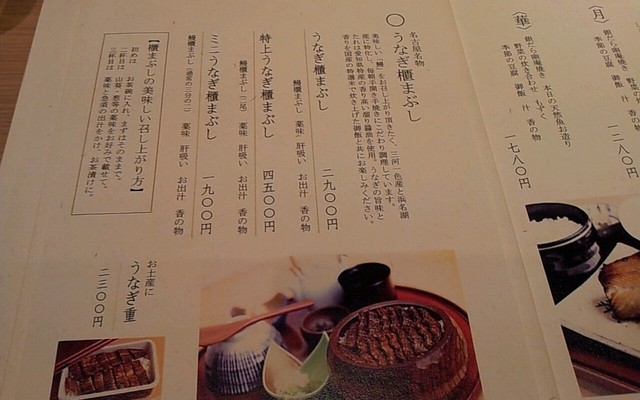 （月）
銀だら幽庵焼き
野菜の炊き合わせ
季節の豆腐 御飯 汁 香の物
一二八〇円
（華）
銀だら幽庵焼き 本日の天然魚お造り
野菜の炊き合わせ もずく
季節の豆腐 御飯 汁 香の物
一七八〇円
名古屋名物
〇 うなぎ櫃まぶし
美味しい【鰻】をお召し上がり頂きたく、三河一色産と浜名湖
産に特化し、毎朝手開き手焼きにこだわり調理しています。
たれは愛知県特産の香り高い溜り醤油を使用。うなぎの旨味と
香りを国産の特選米で炊き上げた御飯と共にお楽しみください。
うなぎ櫃まぶし 二九〇〇円
鰻櫃まぶし 薬味 肝吸い お出汁 香の物
特上うなぎ櫃まぶし 四五〇〇円
鰻櫃まぶし（一尾） 薬味 肝吸い お出汁 香の物
ミニうなぎ櫃まぶし 一九〇〇円
鰻櫃まぶし（通常の三分の二） 薬味 肝吸い お出汁 香の物
【櫃まぶしの美味しい召し上がり方】
初めは お茶碗に入れ、まずはそのままで。
二杯目は 山葵・葱等の薬味をお好みで載せて。
三杯目は 薬味と急須の出汁をかけ、お茶漬けに。
お土産に
うなぎ重
二三〇〇円